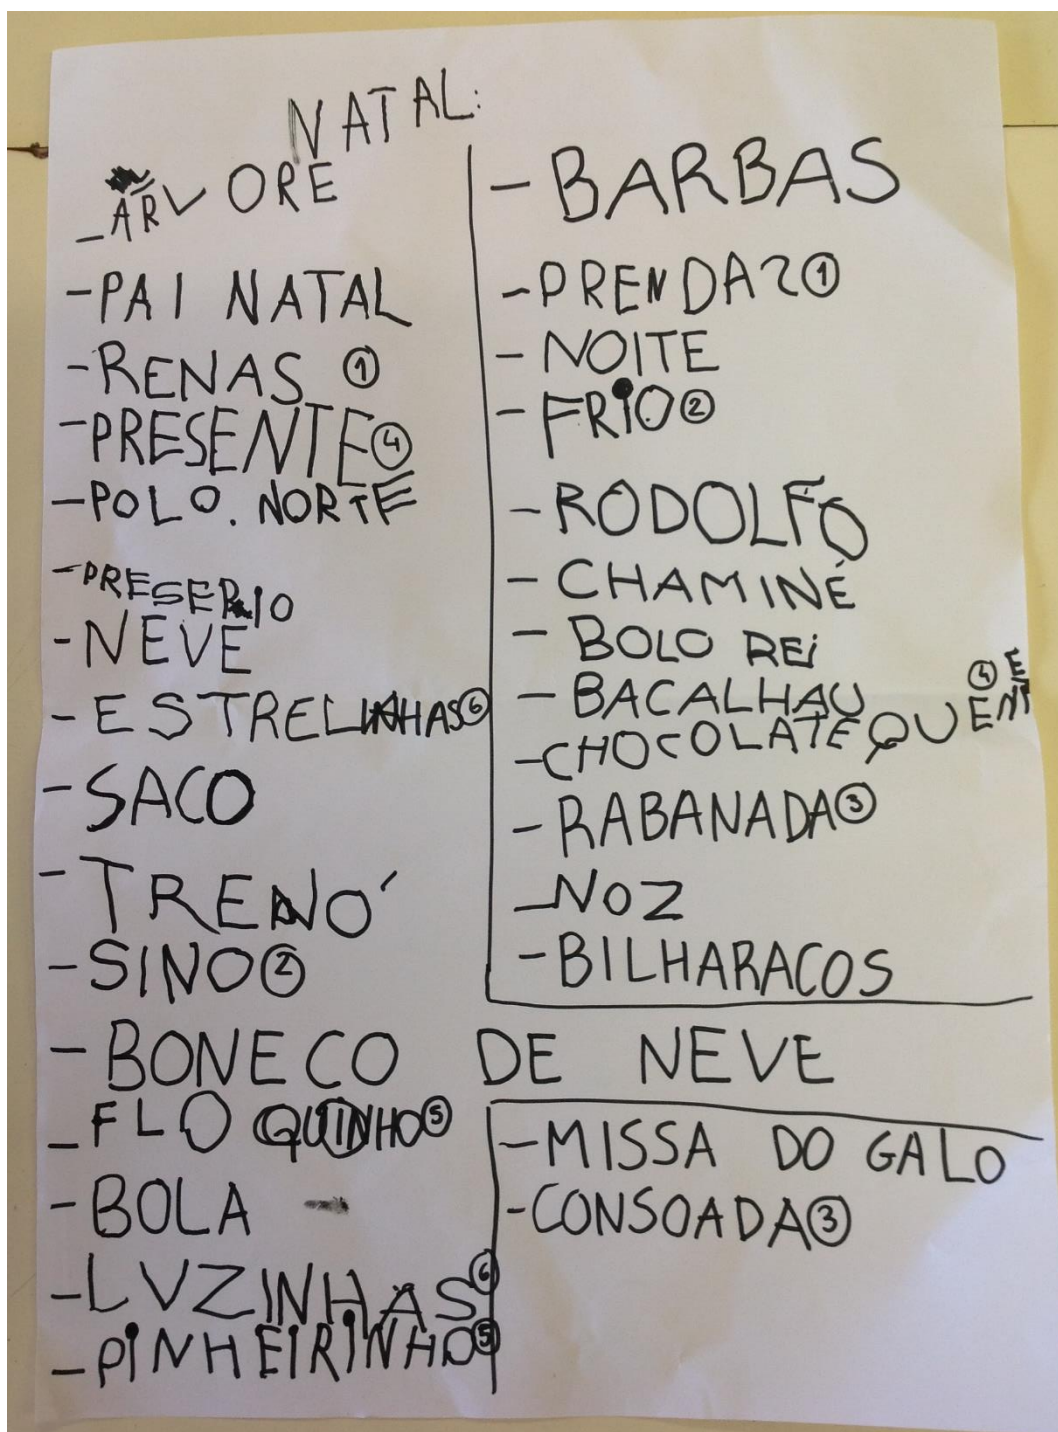 NATAL:
- ÁRVORE
- PAI NATAL
- RENAS ①
- PRESENTE ④
- POLO. NORTE
- PRESEPIO
- NEVE
- ESTRELINHAS ⑥
- SACO
- TRENÓ
- SINO ②
- BONECO DE NEVE
- FLOQUINHO ⑤
- BOLA -
- LUZINHAS ⑥
- PINHEIRINHO ⑤
- BARBAS
- PRENDAS ①
- NOITE
- FRIO ②
- RODOLFO
- CHAMINÉ
- BOLO REI
- BACALHAU
- CHOCOLATE QUENTE ④
- RABANADA ③
- NOZ
- BILHARACOS
- MISSA DO GALO
- CONSOADA ③